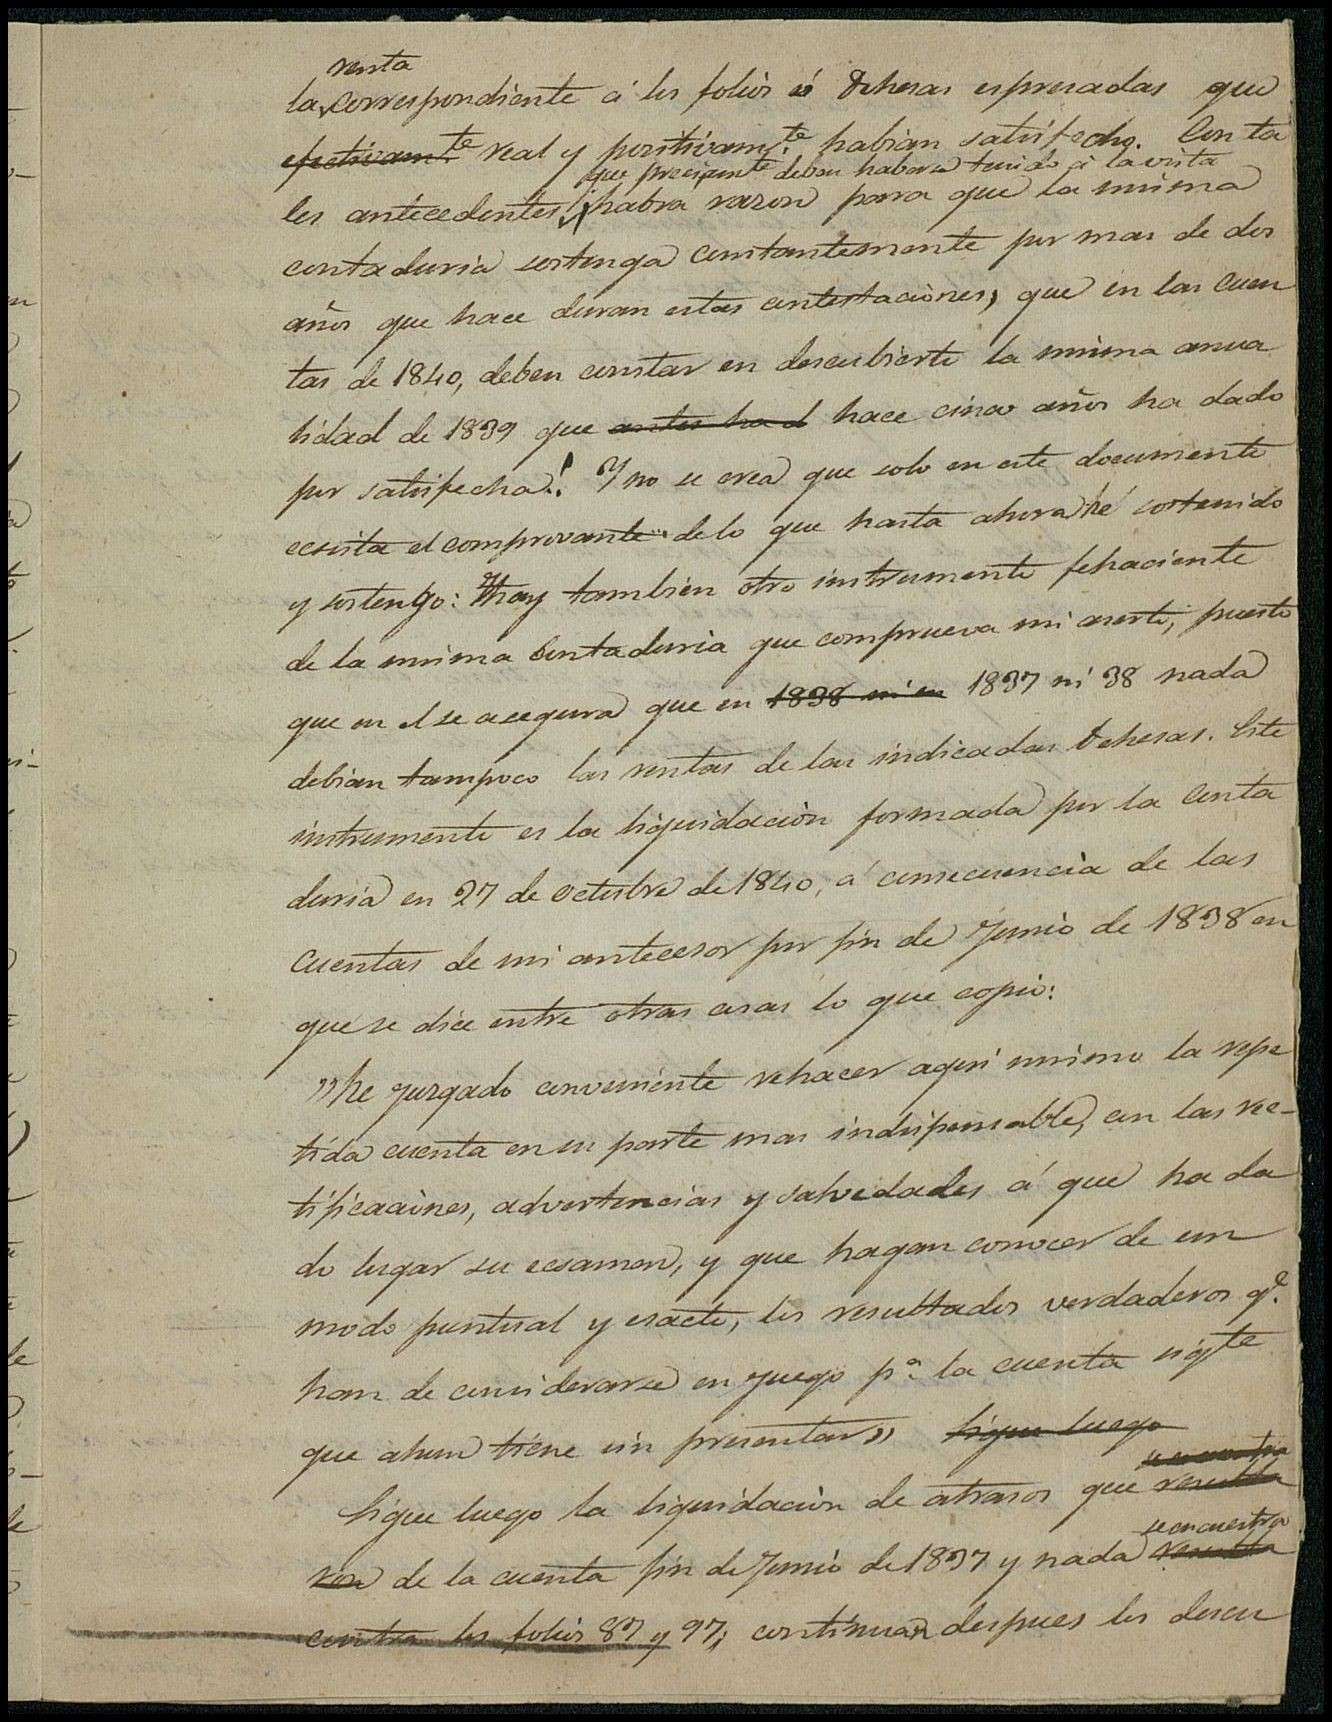 renta
la correspondiente á los folios ó dehesas espresadas que
efectivamte real y positivamte habian satisfecho. Con ta
que precisamte deben haberse tenido á la vista
les antecedentes, habra razon para que la misma
contaduria sostenga constantemente por mas de dos
años que hace duran estas contestaciones, que en las cuen
tas de 1840, deben constar en descubierto la misma anua
lidad de 1839 que antes ha d hace cinco años ha dado
por satisfecha! Y no se crea que solo en este documento
ecsista el comprovante de lo que hasta ahora hé sostenido
y sostengo: Hay tambien otro instrumento fehaciente
de la misma Contaduria que comprueva mi aserto, puesto
que en el se asegura que en 1838 ni en 1837 ni 38 nada
debian tampoco las rentas de las indicadas dehesas. Este
instrumento es la liquidacion formada por la conta
duria en 27 de octubre de 1840, á consecuencia de las
cuentas de mi antecesor por fin de Junio de 1838 en
que se dice entre otras cosas lo que copio:
"He juzgado conveniente rehacer aqui mismo la repe
tida cuenta en su parte mas indispensable, con las rec-
tificaciones, advertencias y salvedades á que ha da
do lugar su ecsamen, y que hagan conocer de un
modo puntual y esacto, los resultados verdaderos qe.
han de considerarse en juego pa. la cuenta sigte
que ahun tiene sin presentar" Sigue luego
se encuentra
Sigue luego la liquidacion de atrasos que resulta
se encuentra
ron de la cuenta fin de Junio de 1837 y nada resulta
contra los folios 87 y 97; continuan despues los descu